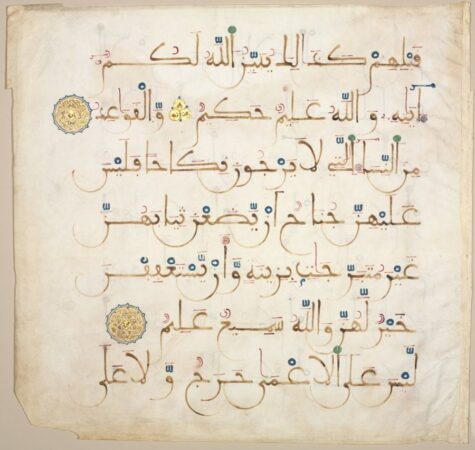 قبلهم كذلك يبين الله لكم
ءايته والله عليم حكيم والقواعد
من النساء التي لا يرجون نكاحا فليس
عليهن جناح ان يضعن ثيابهن
غير متبرجت بزينة وان يستعففن
خير لهن والله سميع عليم
ليس على الاعمى حرج ولا على